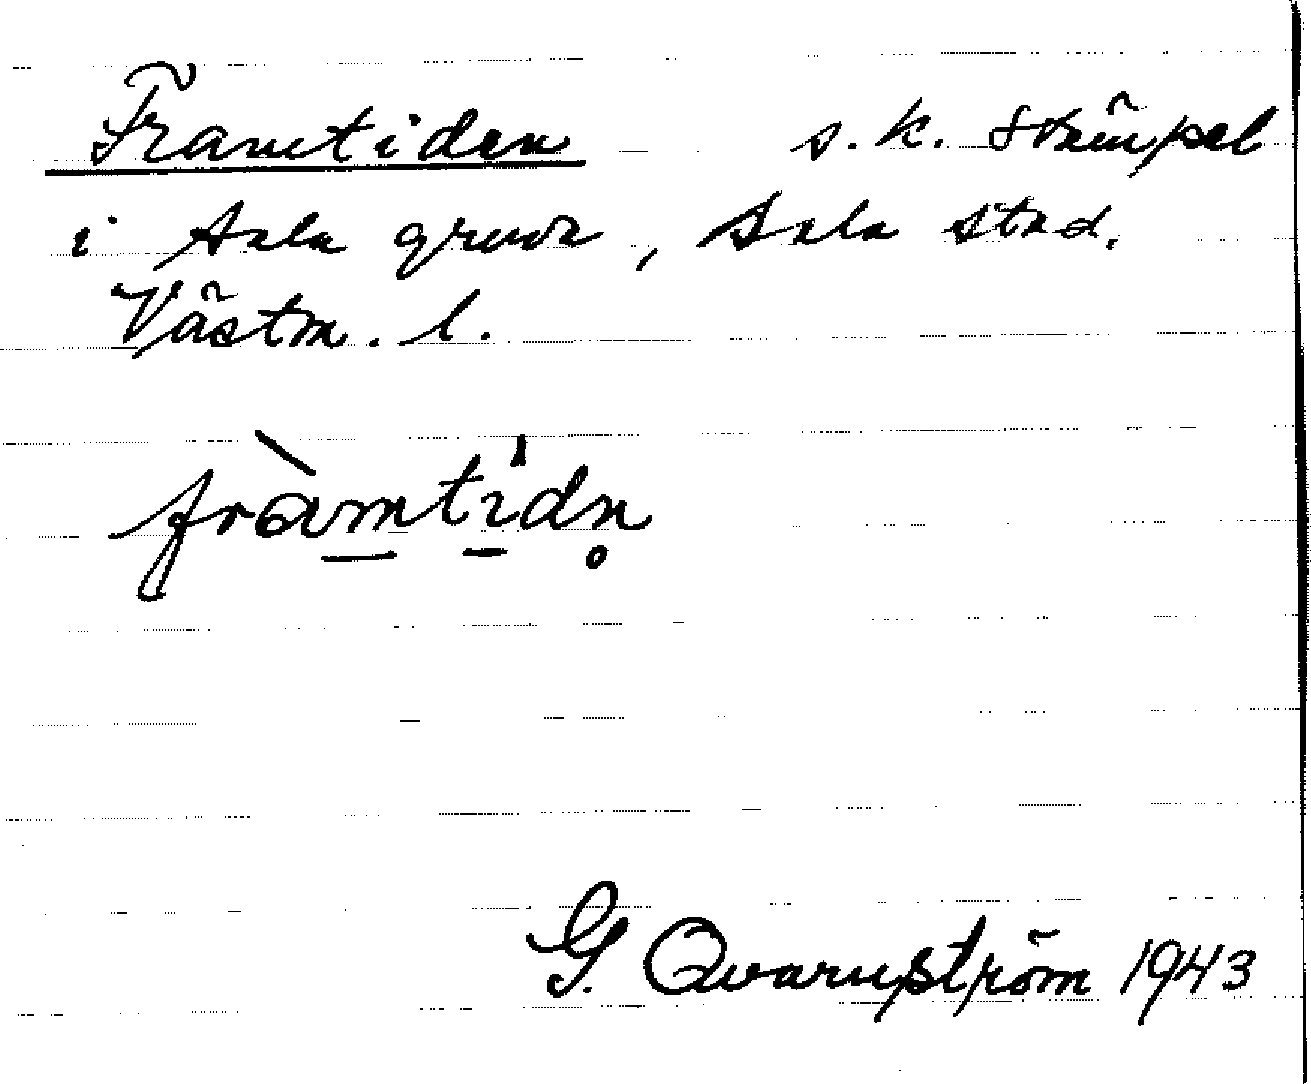 Framtiden s.k. stämpel
i Sala gruva, Sala stad.
Västm. l.
fràmtidn̥
G. Qvarnström 1943